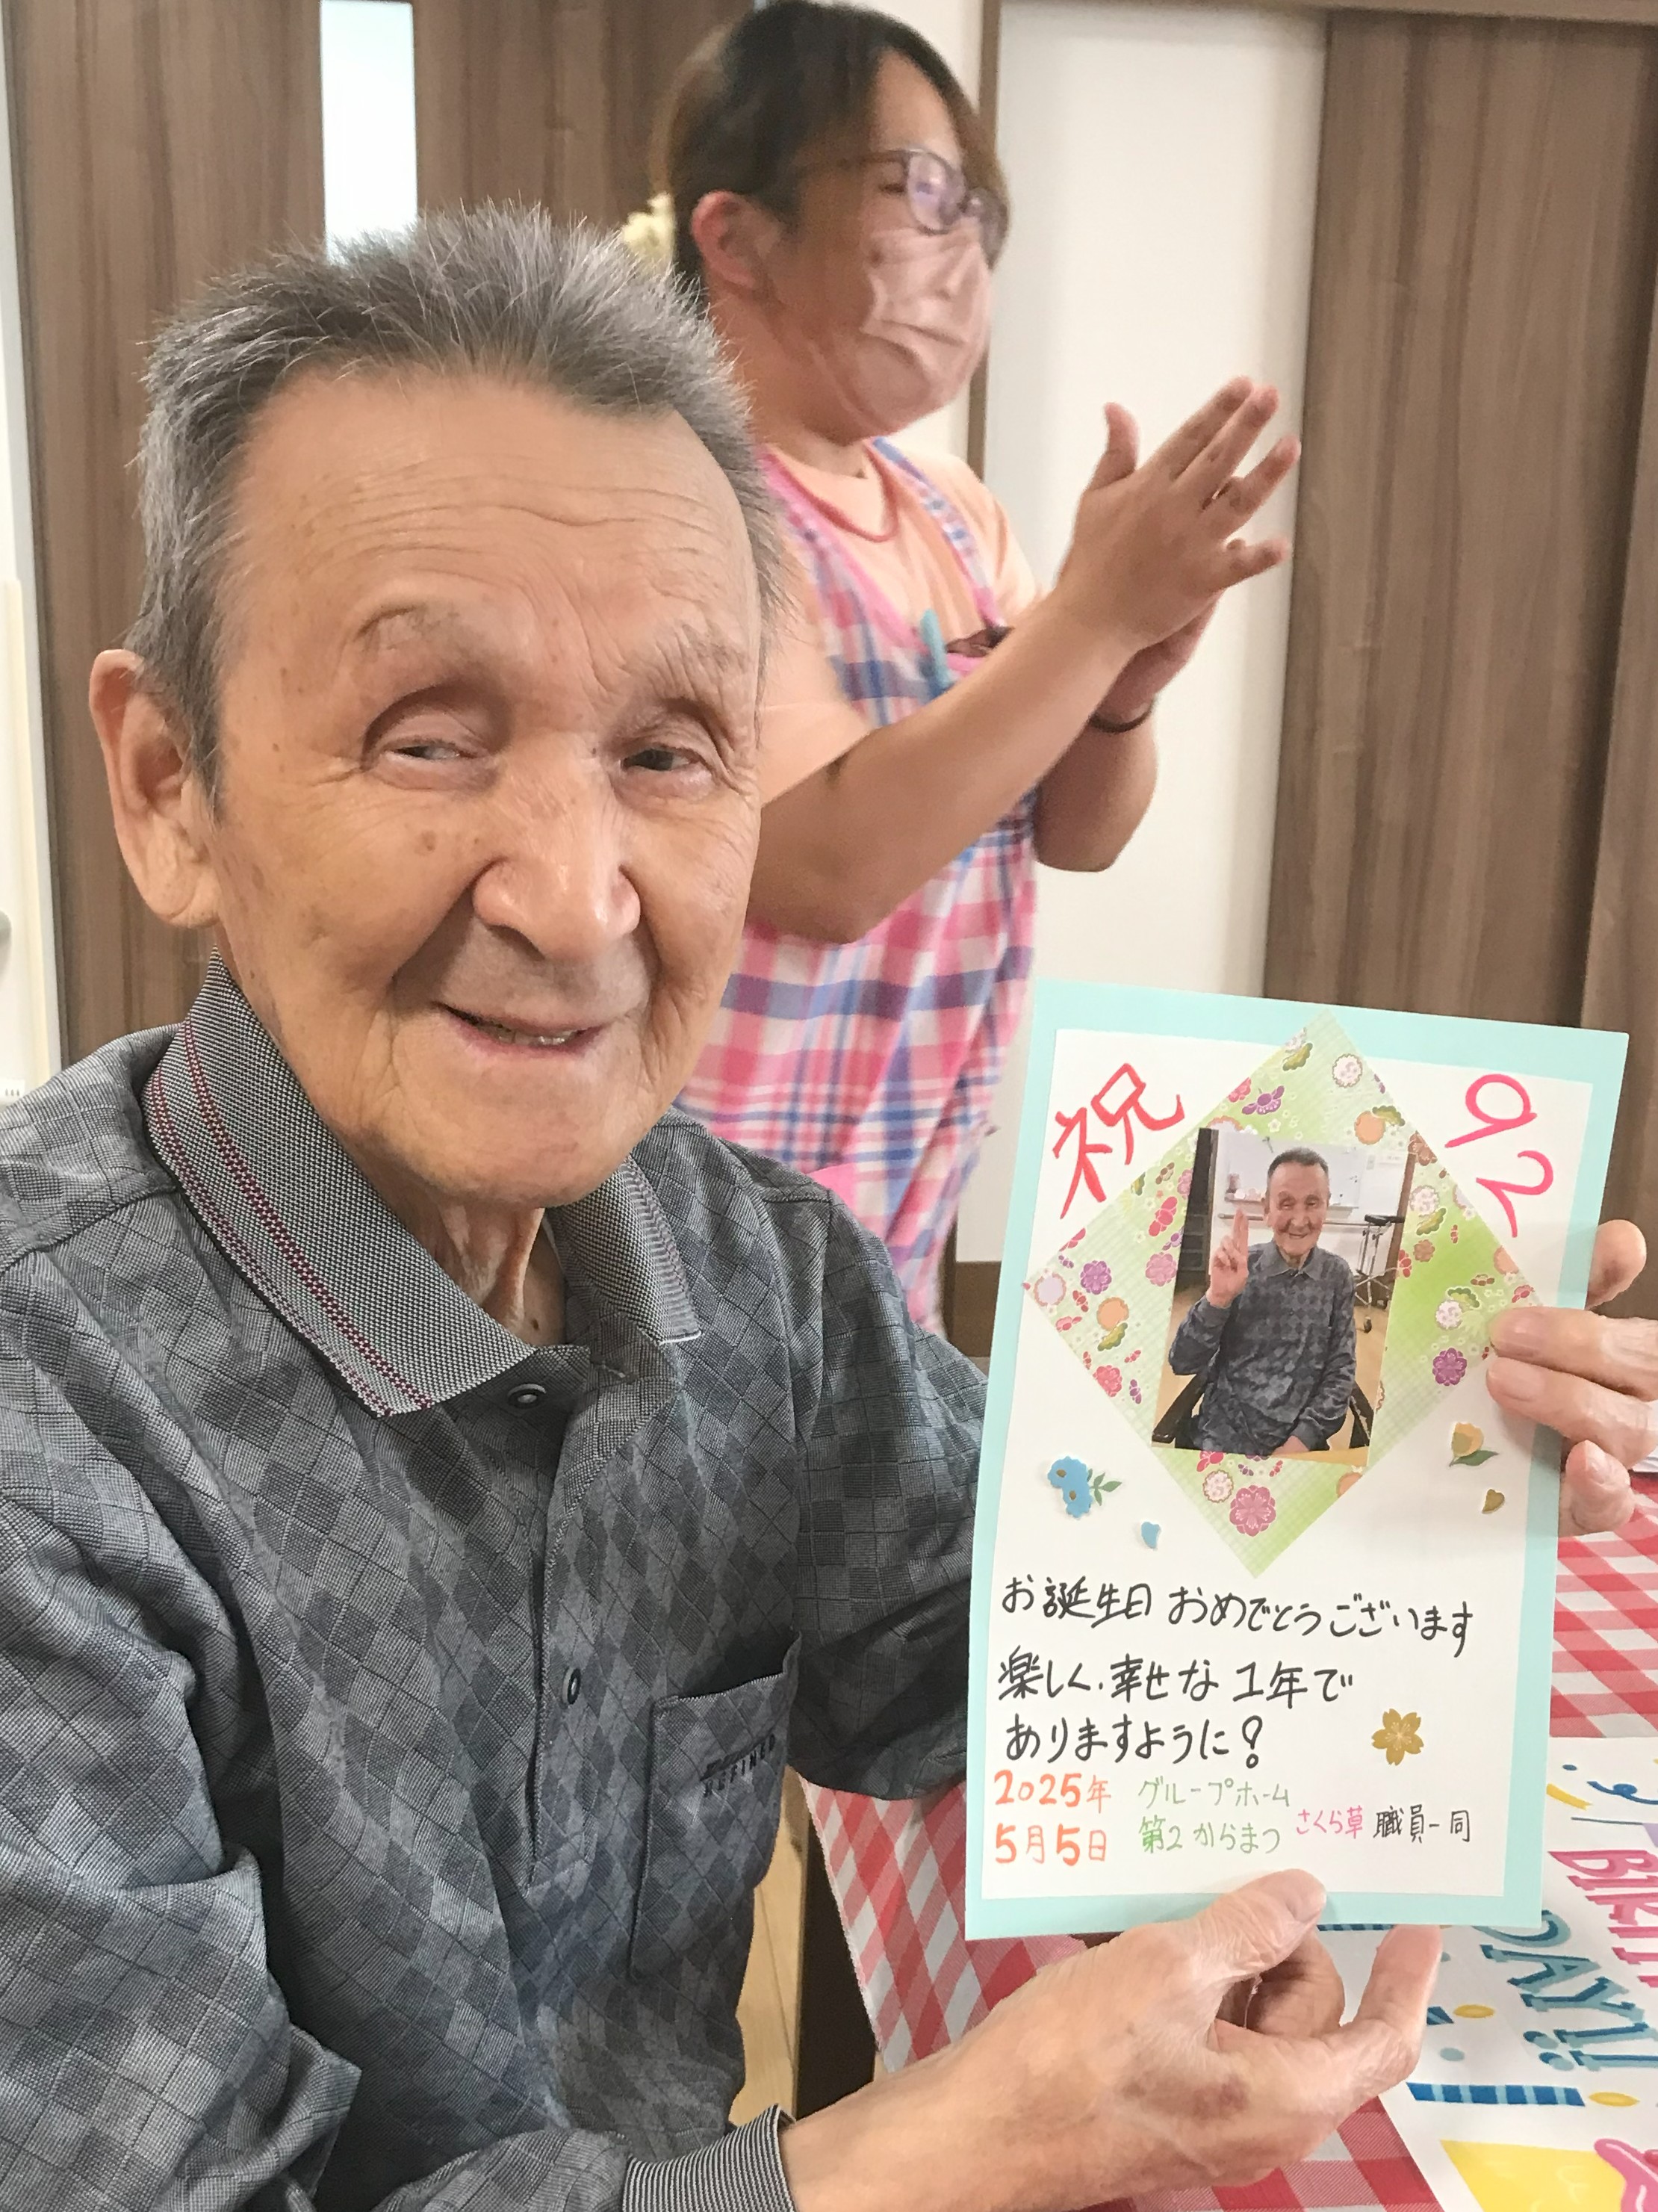 祝
92
お誕生日 おめでとうございます
楽しく、幸せな 1年で
ありますように!
2025年
5月5日
グループホーム
第2 からまつ
さくら草 職員一同
REFINED
BIRTH
DAY!!